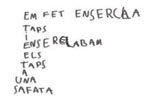 EM FET ENSERCLA
TAPS
I
ENSERCLABAM
ELS
TAPS
A
UNA
SAFATA